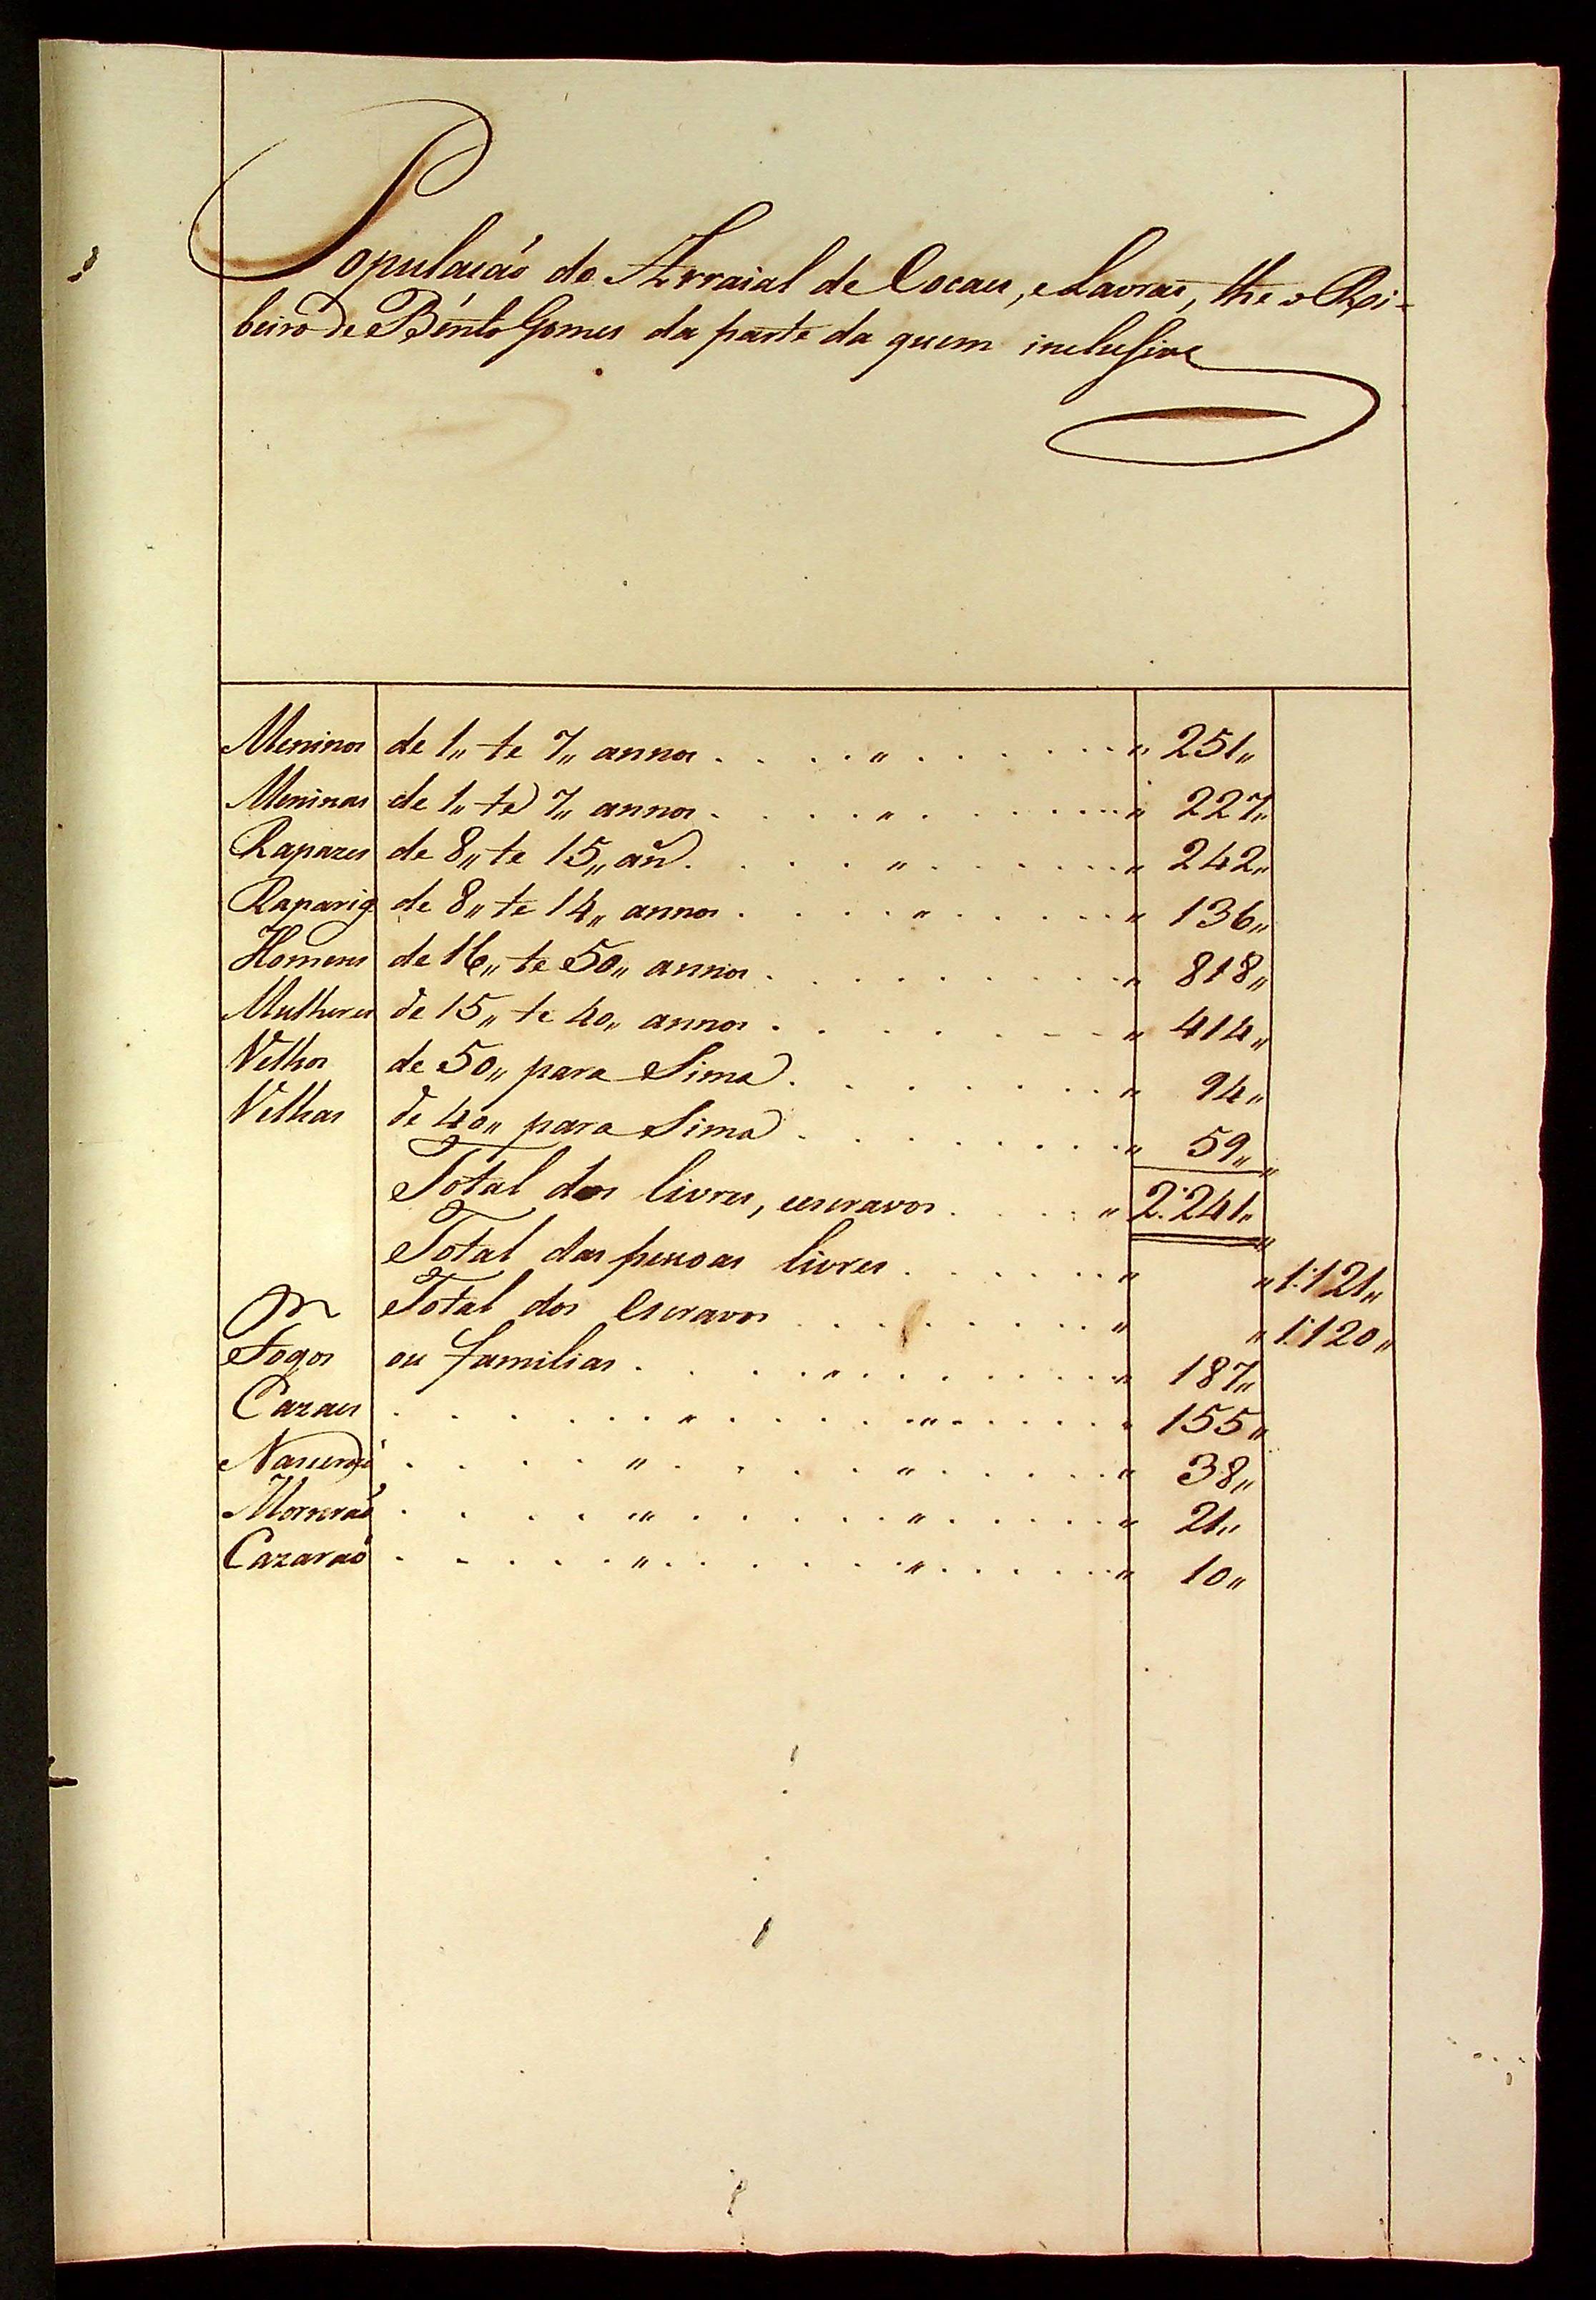 Populaçaõ do Arraial de Cocaes, e Lavras, the o Ri-
beiro de Bento Gomes da parte da quem inclusive
Meninos de 1,, te 7,, annos . . . . ,, . . . . . . ,, 251,,
Meninas de 1,, te 7,, annos . . . . ,, . . . . . . ,, 227,,
Rapazes de 8,, te 15,, añ. . . . . ,, . . . . . . ,, 242,,
Raparig de 8,, te 14,, annos . . . . ,, . . . . . . ,, 136,,
Homens de 16,, te 50,, annos . . . . . . . . . ,, 818,,
Mulheres de 15,, te 40,, annos . . . . . . . . ,, 414,,
Velhos de 50,, para Sima . . . . . . . . ,, 94,,
Velhas de 40,, para Sima . . . . . . . . ,, 59,,
Total dos livres, e escravos . . . . ,, 2:241,,
Total das pessoas livres . . . . . . ,, ,, 1:121,,
Total dos Escravos . . . . . . . . ,, ,, 1:120,,
Fogos ou familias . . . . ,, . . . . . . ,, 187,,
Cazaes . . . . . . ,, . . . . ,, . . . . . ,, 155,,
Nasceraõ . . . . ,, . . . . ,, . . . . . ,, 38,,
Morreraõ . . . . ,, . . . . . ,, . . . . . ,, 21,,
Cazaraõ . . . . . ,, . . . . . ,, . . . . . ,, 10,,